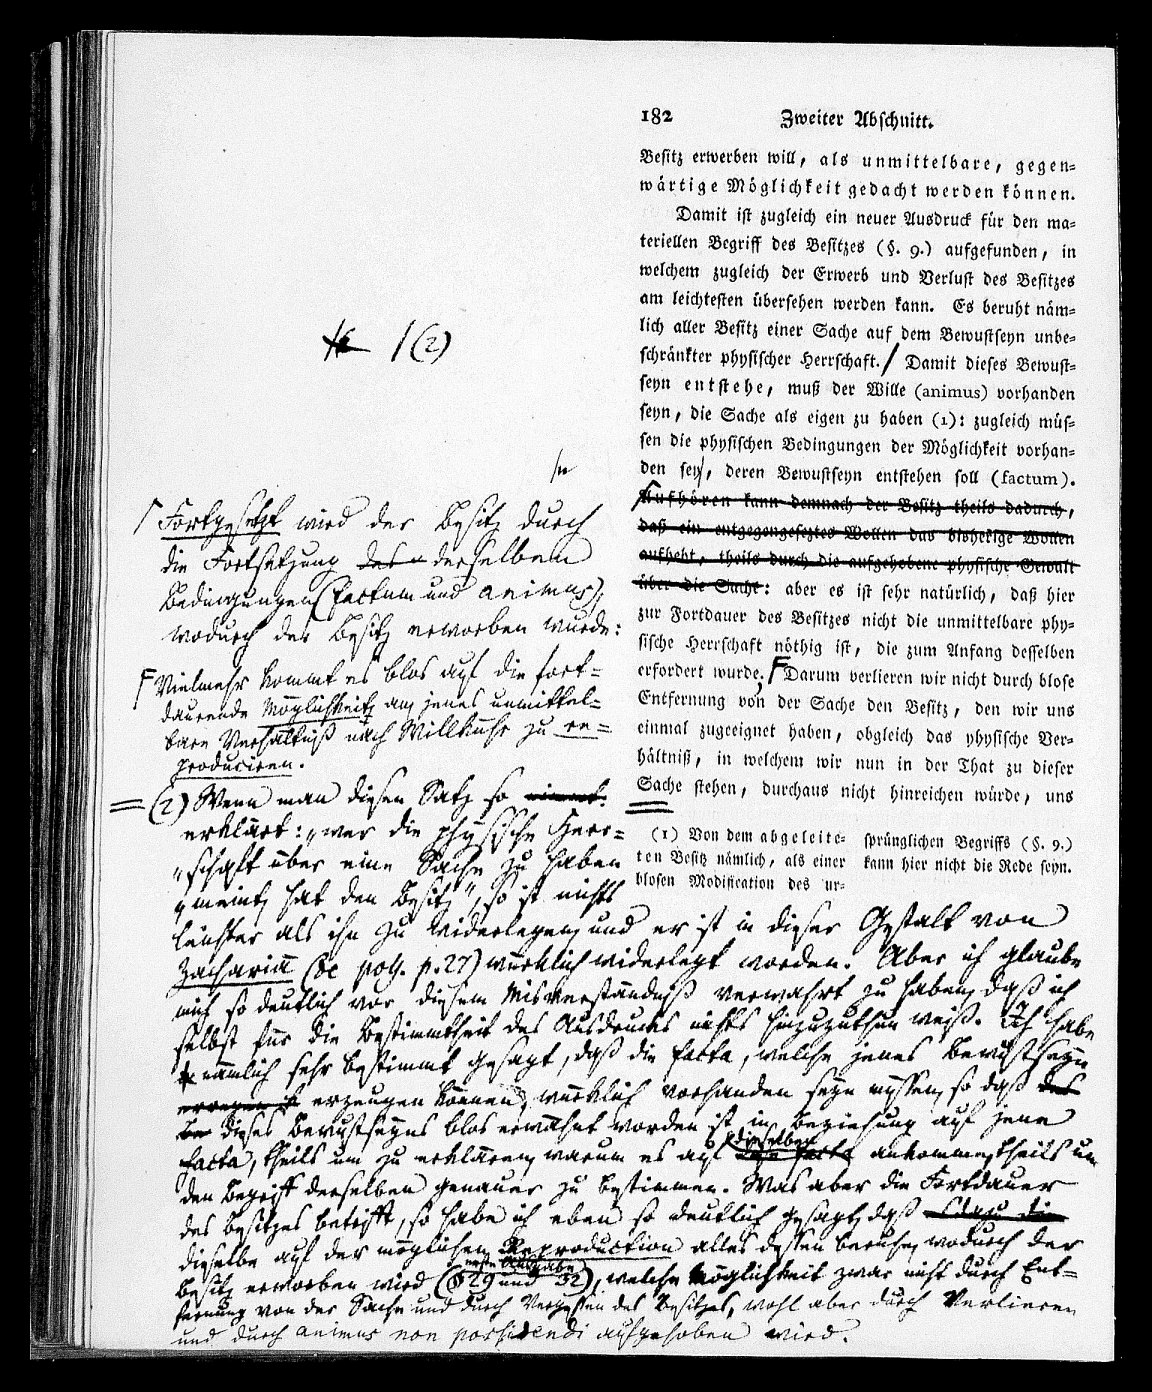 182 Zweiter Abschnitt.
Besitz erwerben will, als unmittelbare, gegen=
wärtige Möglichkeit gedacht werden können.
Damit ist zugleich ein neuer Ausdruck für den ma=
teriellen Begriff des Besitzes (§. 9.) aufgefunden, in
welchem zugleich der Erwerb und Verlust des Besitzes
am leichtesten übersehen werden kann. Es beruht näm=
lich aller Besitz einer Sache auf dem Bewustseyn unbe=
schränkter physischer Herrschaft. / Damit dieses Bewust=
seyn entstehe, muß der Wille (animus) vorhanden
seyn, die Sache als eigen zu haben (1): zugleich müs=
sen die physischen Bedingungen der Möglichkeit vorhan=
den sey, deren Bewustseyn entstehen soll (factum).
Aufhören kann demnach der Besitz theils dadurch,
daß ein entgegengesetztes Wollen das bisherige Wollen
aufhebt, theils durch die aufgehobene physische Gewalt
über die Sache: aber es ist sehr natürlich, daß hier
zur Fortdauer des Besitzes nicht die unmittelbare phy=
sische Herrschaft nöthig ist, die zum Anfang desselben
erfordert wurde; Darum verlieren wir nicht durch blose
Entfernung von der Sache den Besitz, den wir uns
einmal zugeeignet haben, obgleich das physische Ver=
hältniß, in welchem wir nun in der That zu dieser
Sache stehen, durchaus nicht hinreichen würde, uns
(1) Von dem abgeleite=
ten Besitz nämlich, als einer
blosen Modification des ur=
sprünglichen Begriffs (§. 9.)
kann hier nicht die Rede seyn.
/(2)
/n
/ Fortgesetzt wird der Besitz durch
die Fortsetzung des derselben
Bedingungen (factum und animus),
wodurch der Besitz erworben wurde:
F Vielmehr kommt es blos auf die fort=
dauernde Möglichkeit an, jenes unmittel=
bare Verhältniß nach Willkühr zu re=
produciren.
(2) Wenn man diesen Satz so
erklärt: „wer die physische Herr=
„schaft über eine Sache zu haben
„meint, hat den Besitz“, so ist nichts
leichter als ihn zu widerlegen, und er ist in dieser Gestalt von
Zachariä (de poss. p. 27) würklich widerlegt worden. Aber ich glaube
mich so deutlich vor diesem Misverständniß verwahrt zu haben, daß ich
selbst für die Bestimmtheit des Ausdrucks nichts hinzuzuthun weiß. Ich habe
nämlich sehr bestimmt gesagt, daß die facta, welche jenes Bewustseyn
erzeugen können, würklich vorhanden seyn müssen, so daß des
dieses Bewustseyns blos erwähnt worden ist in Beziehung auf jene
facta, theils um zu erklären, warum es auf dieselben ankomme, theils um
den Begriff derselben genauer zu bestimmen. Was aber die Fortdauer
des Besitzes betrifft, so habe ich eben so deutlich gesagt, daß
dieselbe auf der möglichen Reproduction alles dessen beruhe, wodurch der
Besitz erworben wird (erste Ausgabe § 29 und 32), welche Möglichkeit zwar nicht durch Ent=
fernung von der Sache und durch Vergessen des Besitzes, wohl aber durch Verlieren
und durch animus non possidendi aufgehoben wird.